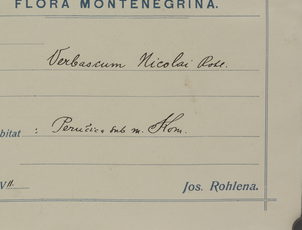 FLORA MONTENEGRINA.
Verbascum Nicolai Rohl.
bitat : Peručica sub m. Kom.
VII.
Jos. Rohlena.